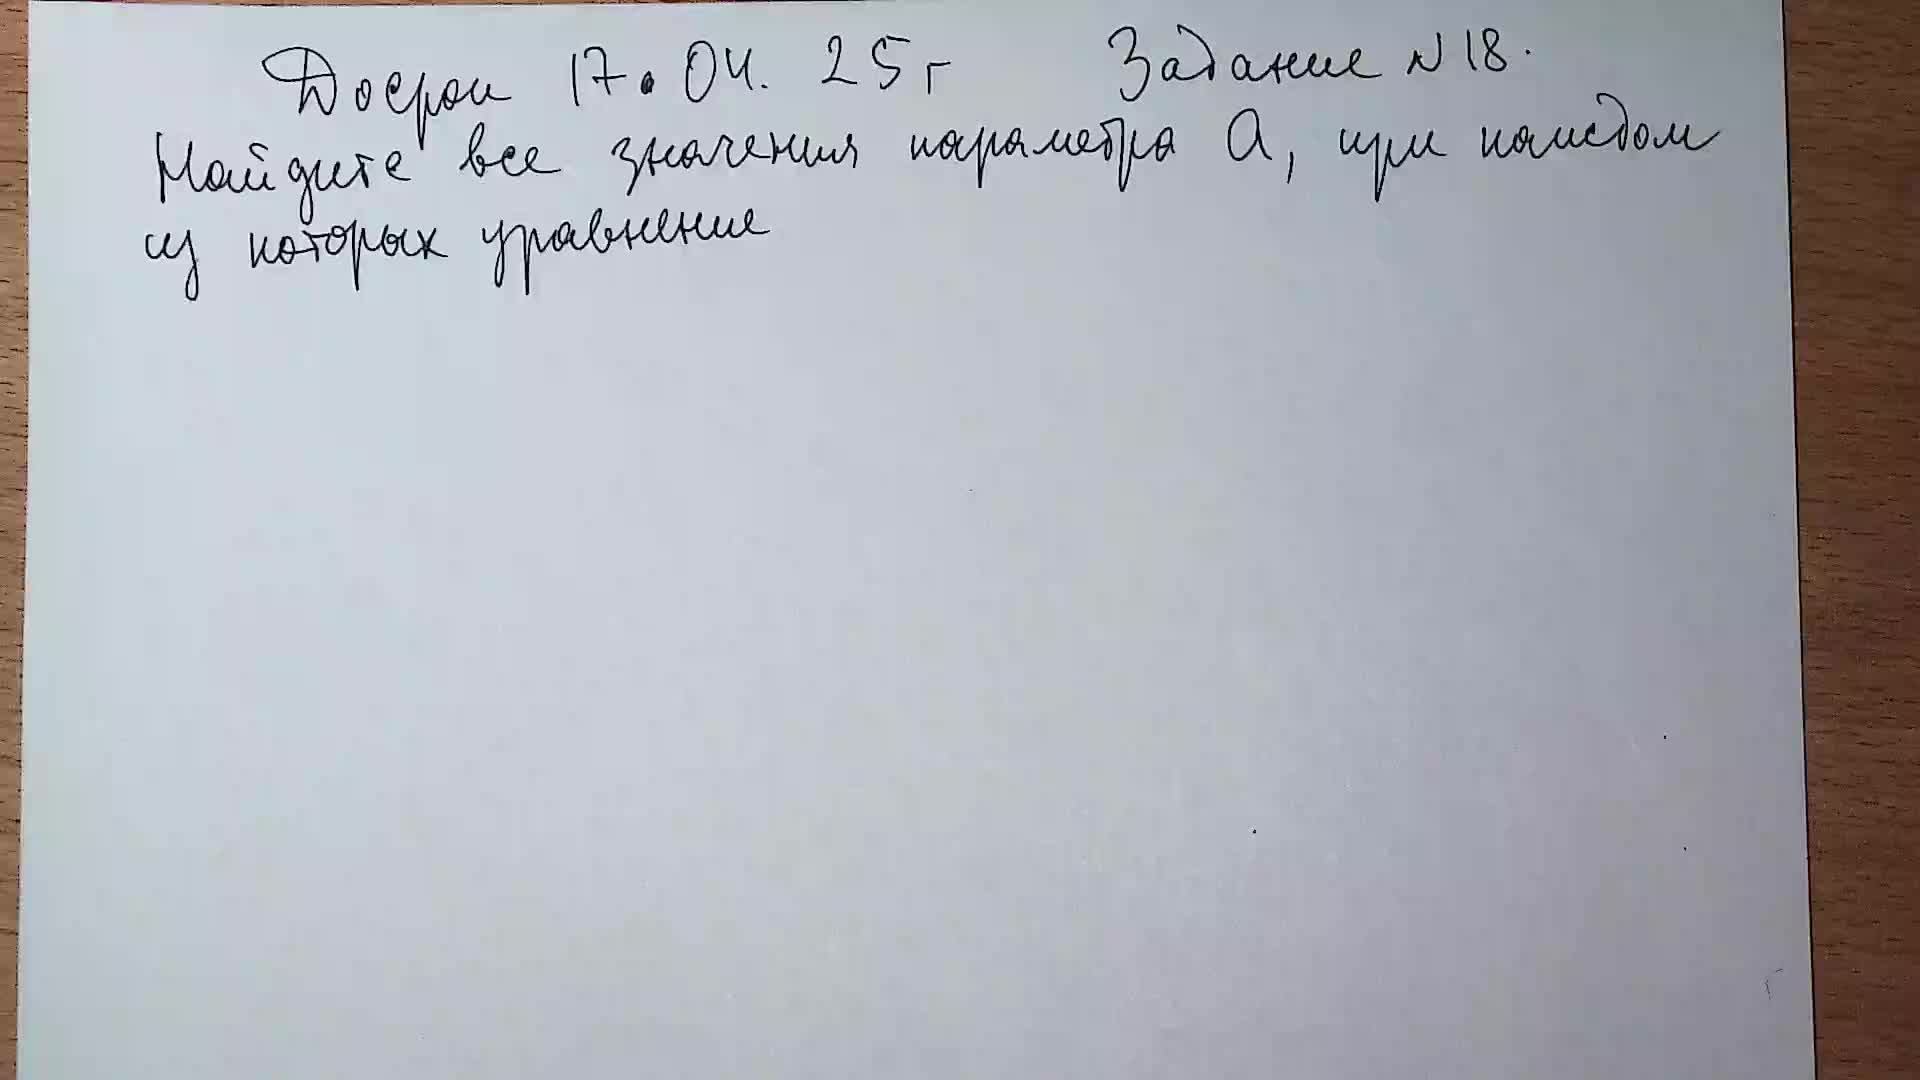 Досрок 17.04.25г Задание №18.
Найдите все значения параметра а, при каждом
из которых уравнение